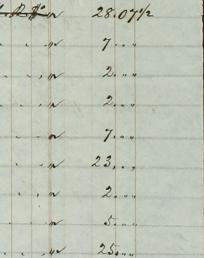 " 28.07½
" 7...
" 2...
" 2...
" 7...
" 23...
" 2...
" 5...
" 25...